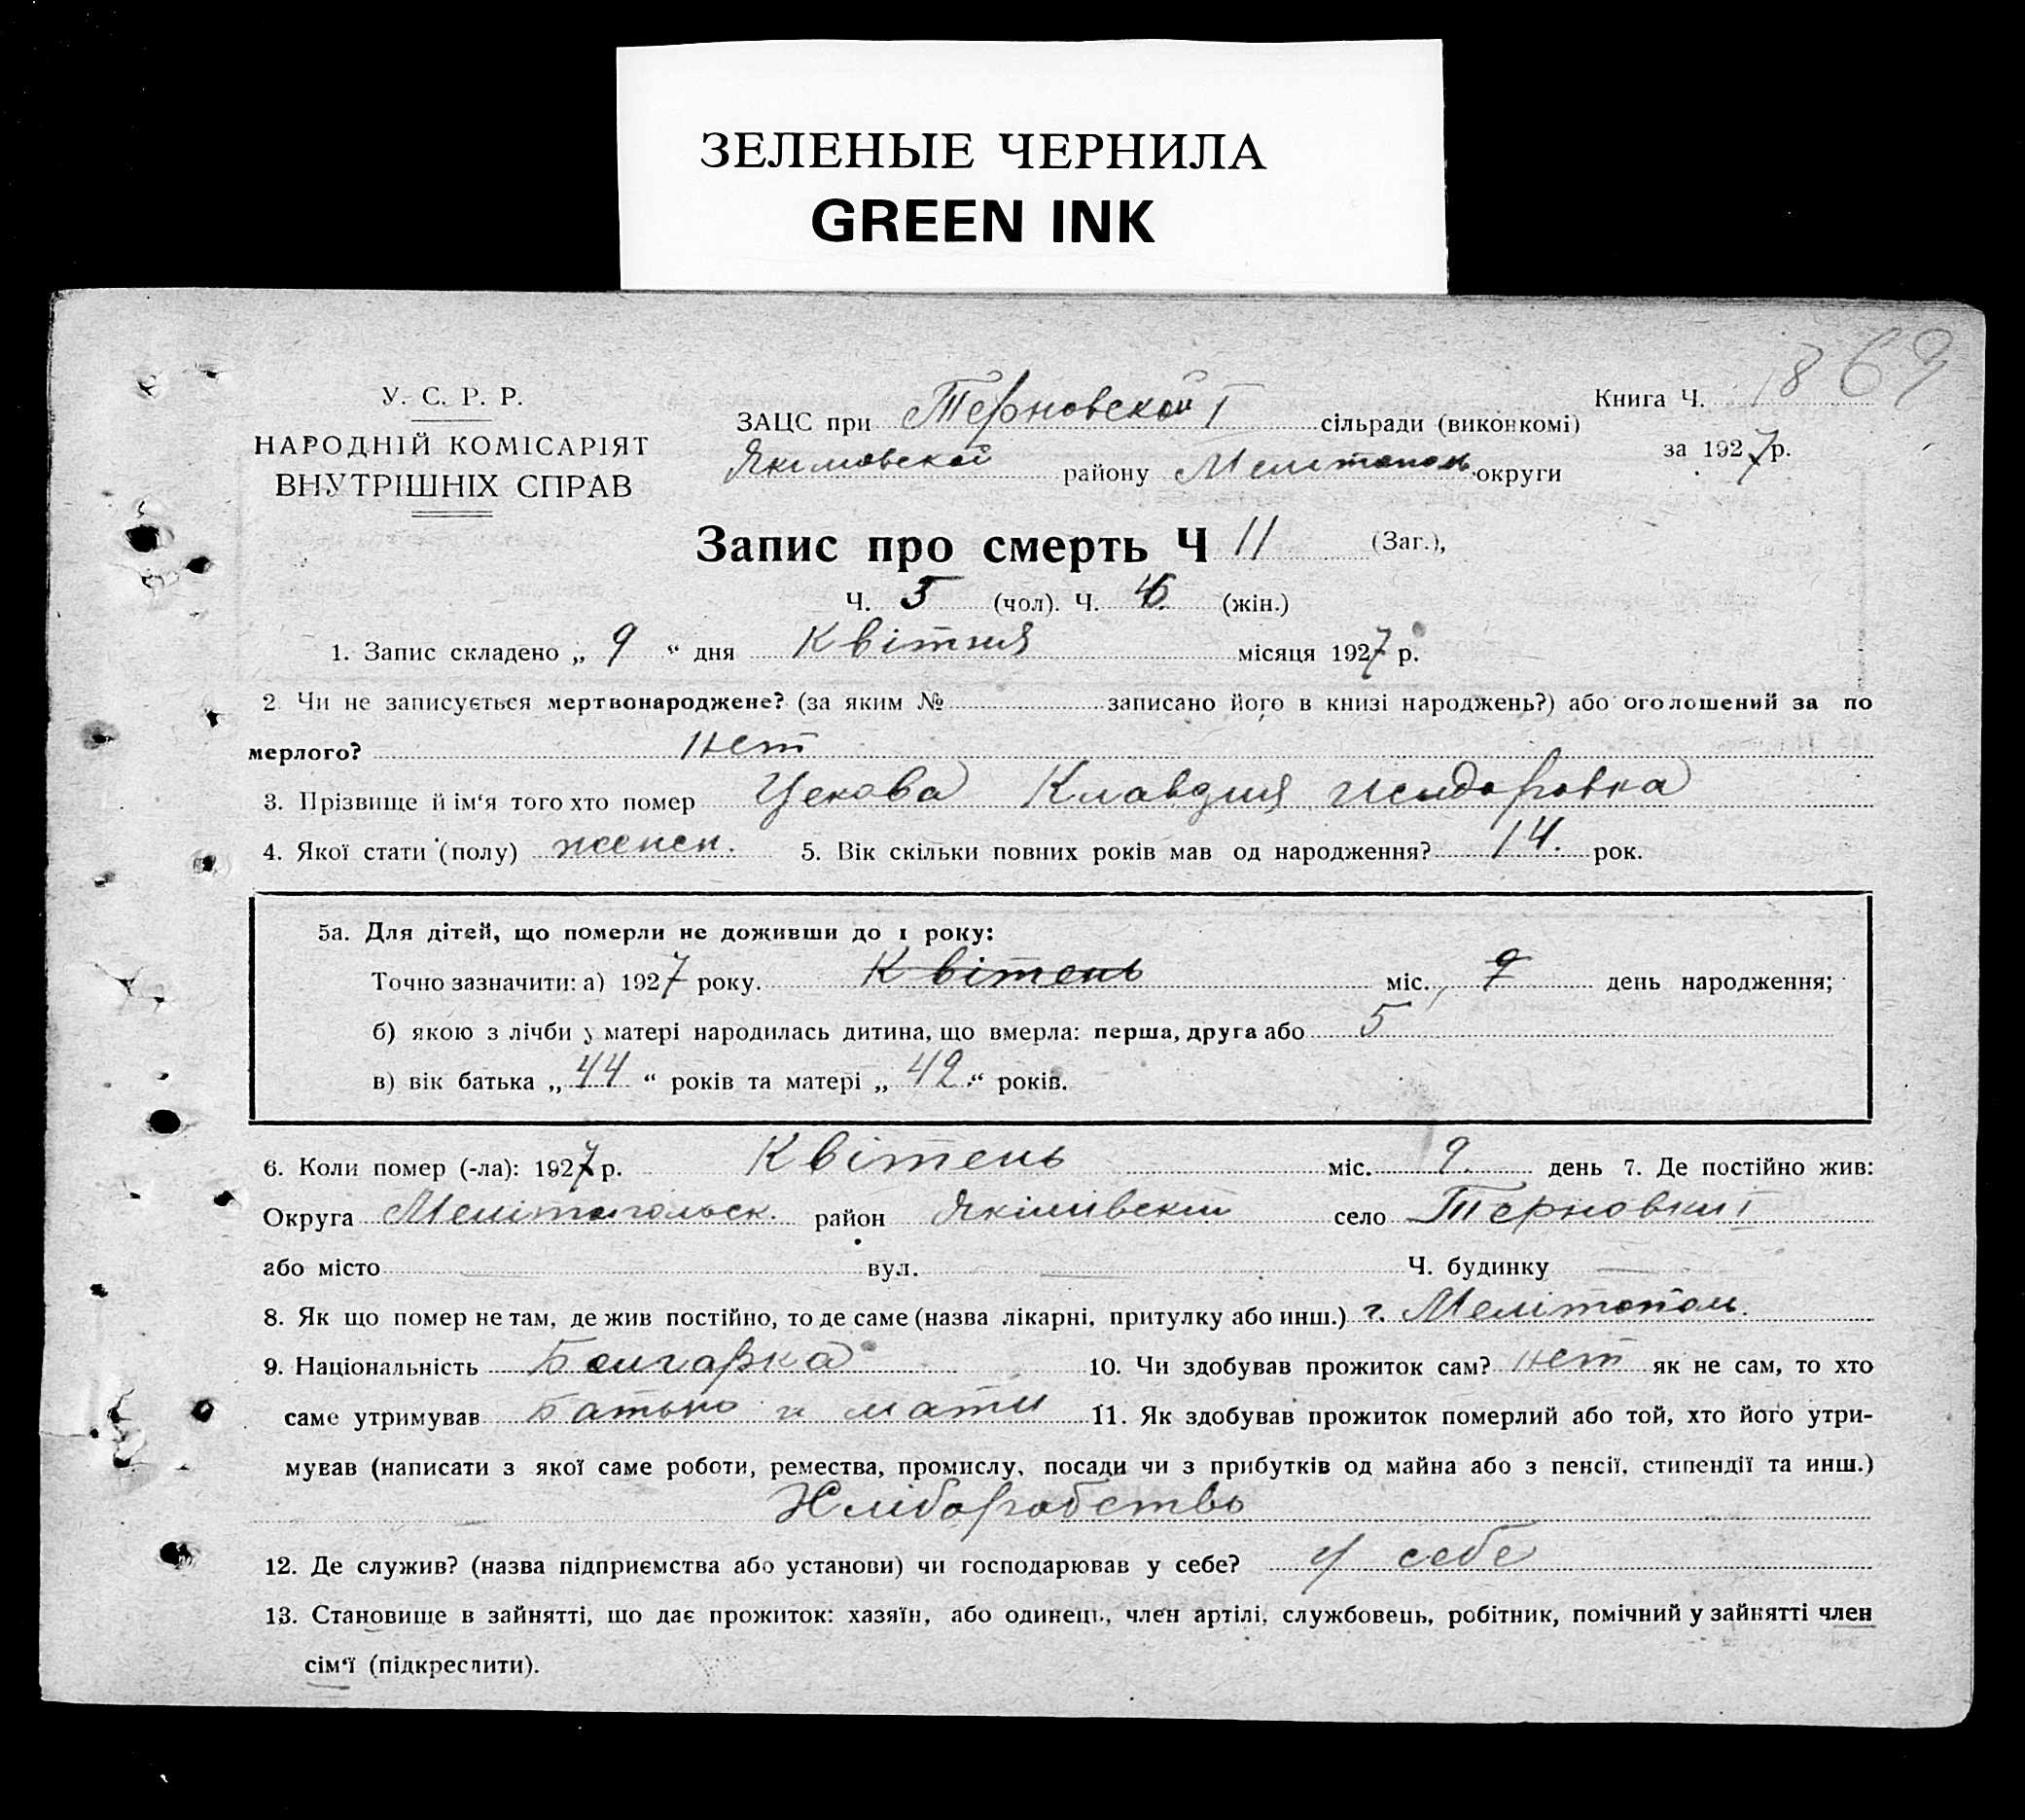 ЗЕЛЕНЫЕ ЧЕРНИЛА
GREEN INK
869
У. С. Р. Р.
НАРОДНІЙ КОМІСАРІЯТ
ВНУТРІШНІХ СПРАВ
ЗАЦС при Терновской I сільради (виконкомі)
Якимовской району Мелитополь. округи
Книга Ч.
за 1927 р.
Запис про смерть Ч 11 (Заг.),
Ч. 5 (чол). Ч. 6 (жін.)
1. Запис складено „ 9 “ дня Квітня місяця 1927 р.
2 Чи не записується мертвонароджене? (за яким № записано його в книзі народжень?) або оголошений за по
мерлого? нет
3. Прізвище й ім‘я того хто помер Цекова Клавдия Исидоровна
4. Якої стати (полу) женск. 5. Вік скільки повних років мав од народження? 14. рок.
5а. Для дітей, що померли не доживши до 1 року:
Точно зазначити: а) 1927 року. Квітень міс. 9 день народження;
б) якою з лічби у матері народилась дитина, що вмерла: перша, друга або 5
в) вік батька „ 44 “ років та матері „ 42. “ років.
6. Коли помер (-ла): 1927 р. Квітень міс. 9. день 7. Де постійно жив:
Округа Мелітопольск. район Якимівский село Терновки I
або місто вул. Ч. будинку
8. Як що помер не там, де жив постійно, то де саме (назва лікарні, притулку або инш.) г. Мелітополь.
9. Національність Болгарка 10. Чи здобував прожиток сам? нет як не сам, то хто
саме утримував Батько и мати 11. Як здобував прожиток померлий або той, хто його утри-
мував (написати з якої саме роботи, ремества, промислу, посади чи з прибутків од майна або з пенсії, стипендії та инш.)
Хліборобство
12. Де служив? (назва підприємства або установи) чи господарював у себе? у себе
13. Становище в зайнятті, що дає прожиток: хазяїн, або одинець, член артілі, службовець, робітник, помічний у зайнятті член
сім‘ї (підкреслити).